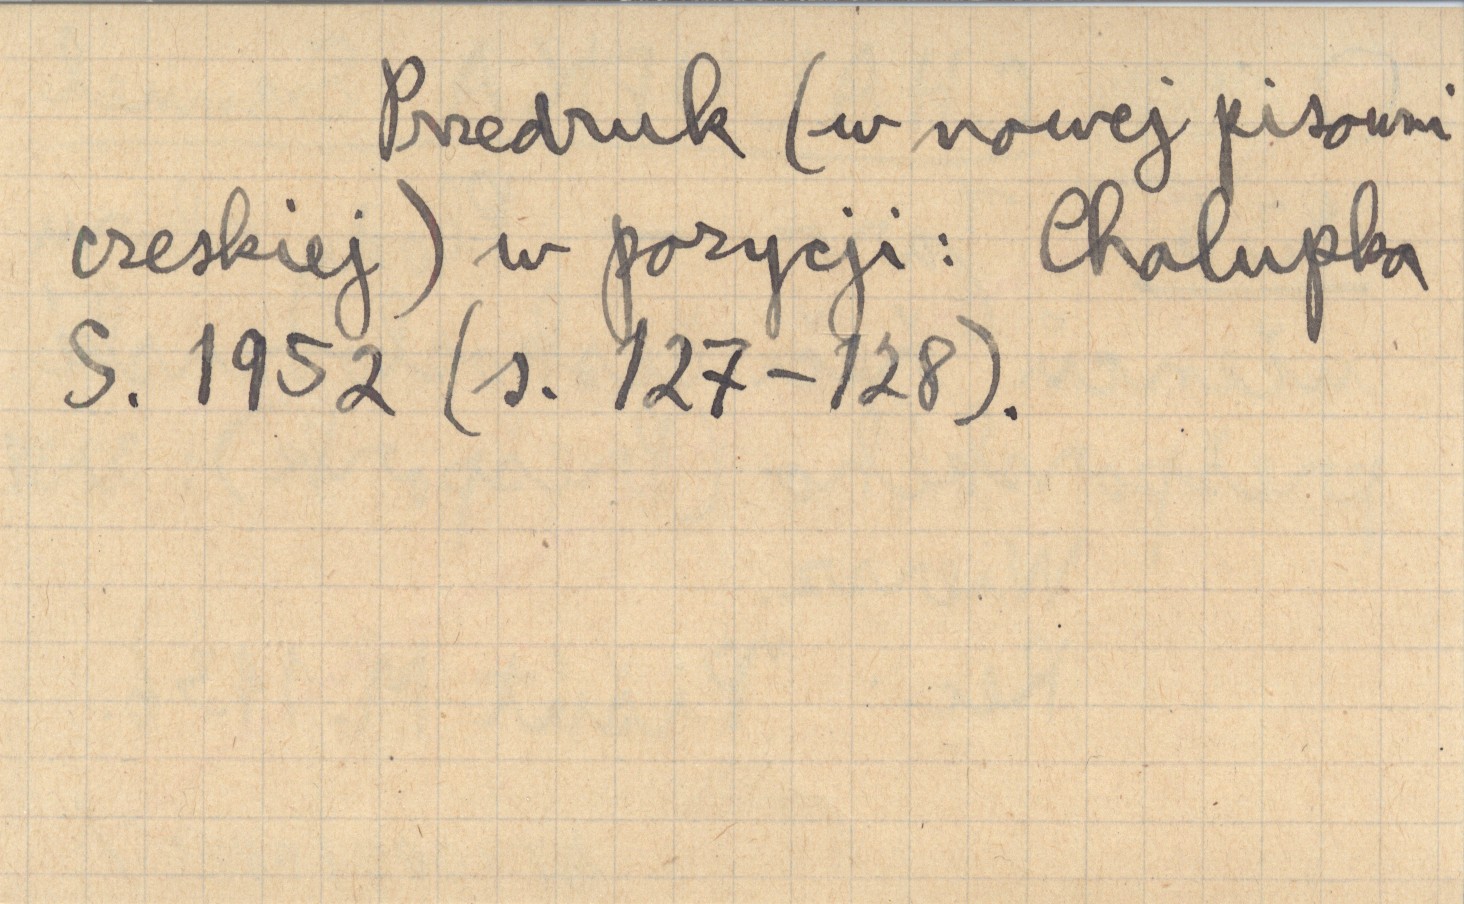 Przedruk (w nowej pisowni
czeskiej) w pozycji: Chalupka
S. 1952 (s. 127-128).